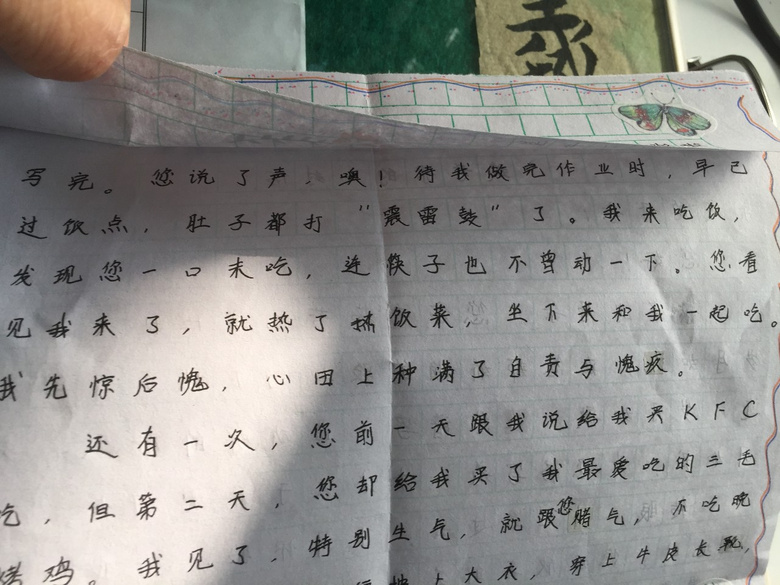 写完。您说了声,噢!待我做完作业时,早已
过饭点,肚子都打“震雷鼓”了。我来吃饭,
发现您一口未吃,连筷子也不曾动一下。您看
见我来了,就热了热饭菜,坐下来和我一起吃。
我先惊后愧,心田上种满了自责与愧疚。
还有一次,您前一天跟我说给我买KFC
吃,但第二天,您却给我买了我最爱吃的三毛
烤鸡。我见了,特别生气,就跟您赌气,不吃晚
上大衣,穿上牛皮长靴,